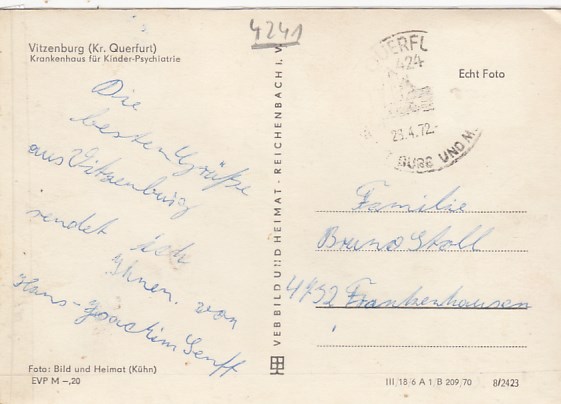 4241
Vitzenburg (Kr. Querfurt)
Krankenhaus für Kinder-Psychiatrie
Die
besten Grüße
aus Vitzenburg
sendet ich
Ihnen. von
Hans-Joachim Senff
Foto: Bild und Heimat (Kühn)
EVP M –,20
VEB BILD UND HEIMAT · REICHENBACH I. V
QUERFU
424
4.72.
BURG UND MU
Echt Foto
Familie
Bruno Stoll
4732 Frankenhausen
III/18/6 A 1 B 209/70 8/2423